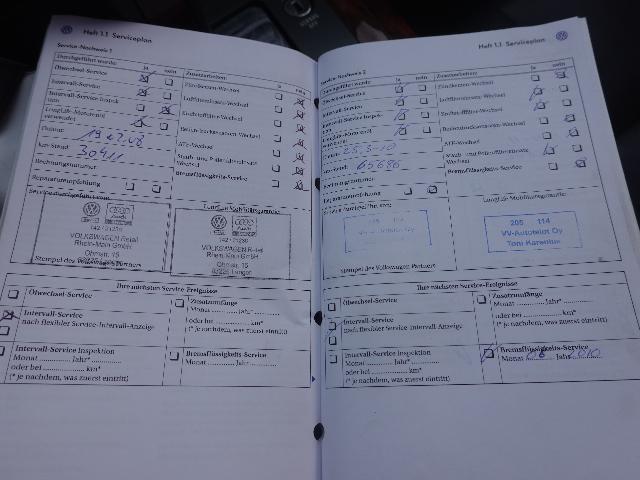 Heft 1.1 Serviceplan
Service-Nachweis 1
Durchgeführt wurde: ja nein Zusatzarbeiten: ja nein
Ölwechsel-Service
Intervall-Service
Intervall-Service Inspek-
tion
LongLife-Motorenöl
verwendet
Datum: 19.02.08
km-Stand: 30411
Rechnungsnummer
Reparaturempfehlung
Service durchgeführt von:
Zündkerzen-Wechsel
Luftfiltereinsatz-Wechsel
Kraftstofffilter-Wechsel
ATF-Wechsel
Staub- und Pollenfiltereinsatz
Wechsel
Bremsflüssigkeits-Service
LongLife Mobilitätsgarantie:
VOLKSWAGEN Retail
Rhein-Main GmbH
Ohmstr. 15
Stempel des Volkswagen Partners
VOLKSWAGEN Retail
Rhein-Main GmbH
Ohmstr. 15
63225 Langen
Ihre nächsten Service-Ereignisse
Ölwechsel-Service
Intervall-Service
nach flexibler Service-Intervall-Anzeige
Intervall-Service Inspektion
Monat .......... Jahr*..........
oder bei .................... km*
(* je nachdem, was zuerst eintritt)
Zusatzumfänge
Monat .......... Jahr*..........
oder bei .................... km*
(* je nachdem, was zuerst eintritt)
Bremsflüssigkeits-Service
Monat .......... Jahr..........
Heft 1.1 Serviceplan
Service-Nachweis 2
Durchgeführt wurde: ja nein Zusatzarbeiten: ja nein
Ölwechsel-Service
Intervall-Service
Intervall-Service Inspek-
tion
LongLife-Motorenöl
verwendet
Datum: 25.3-10
km-Stand: 65686
Rechnungsnummer
Reparaturempfehlung
Zündkerzen-Wechsel
Luftfiltereinsatz-Wechsel
Kraftstofffilter-Wechsel
ATF-Wechsel
Staub- und Pollenfiltereinsatz
Wechsel
Bremsflüssigkeits-Service
LongLife Mobilitätsgarantie:
205 114
VV-Autotalot Oy
Stempel des Volkswagen Partners
205 114
VV-Autotalot Oy
Ihre nächsten Service-Ereignisse
Ölwechsel-Service
Intervall-Service
nach flexibler Service-Intervall-Anzeige
Intervall-Service Inspektion
Monat .......... Jahr*..........
oder bei .................... km*
(* je nachdem, was zuerst eintritt)
Zusatzumfänge
Monat .......... Jahr*..........
oder bei .................... km*
(* je nachdem, was zuerst eintritt)
Bremsflüssigkeits-Service
Monat 06 Jahr 2010